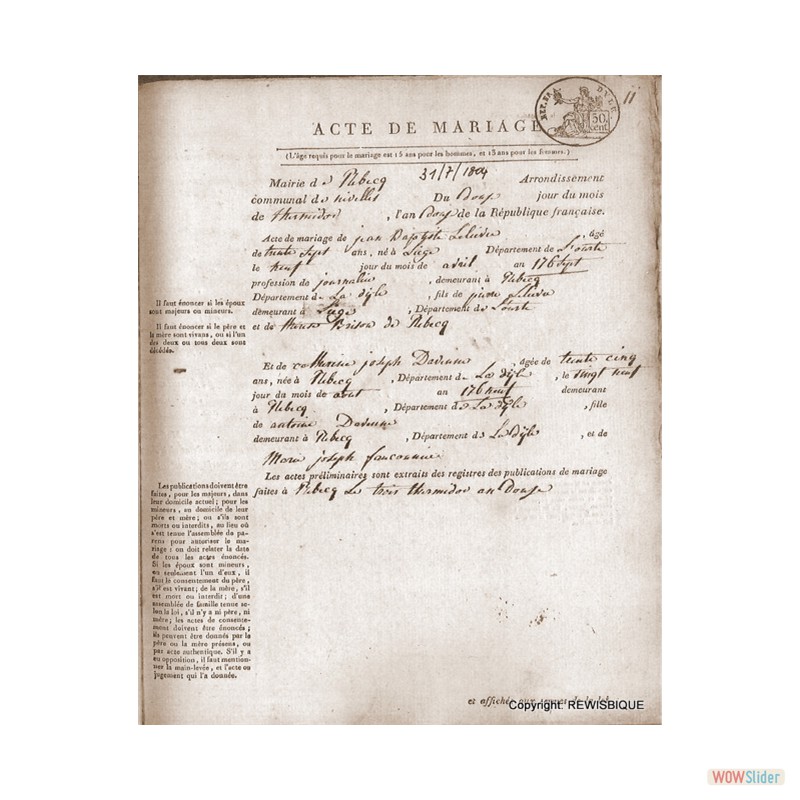 11
30
cent.
ACTE DE MARIAGE
(L'âge requis pour le mariage est 15 ans pour les hommes, et 13 ans pour les femmes.)
Mairie de Rebecq 31/7/1804 Arrondissement
communal de nivelles Du Douze jour du mois
de thermidor , l'an Douze de la République française.
Acte de mariage de jean Baptiste Lelievre , âgé
de trente sept ans, né à Liége Département de L'ourte
le neuf jour du mois de avril an 176 sept
profession de journalier , demeurant à Rebecq
Département de La dyle , fils de pierre Lelievre
demeurant à Liége , Département de L'ourte
et de Brison de Rebecq
Il faut énoncer si les époux
sont majeurs ou mineurs.
Il faut énoncer si le père et
la mère sont vivans, ou si l'un
des deux ou tous deux sont
décédés.
Et de catherine joseph , âgée de trente cinq
ans, née à Rebecq , Département de La dyle , le vingt neuf
jour du mois de aout an 176 neuf demeurant
à Rebecq , Département de La dyle , fille
de antoine
demeurant à Rebecq , Département de La dyle , et de
Marie joseph fauconnier
Les actes préliminaires sont extraits des registres des publications de mariage
faites à Rebecq Le trois thermidor an Douze
Les publications doivent être
faites, pour les majeurs, dans
leur domicile actuel; pour les
mineurs, au domicile de leur
père et mère; ou s'ils sont
morts ou interdits, au lieu où
s'est tenue l'assemblée de pa-
rens pour autoriser le ma-
riage: on doit relater la date
de tous les actes énoncés.
Si les époux sont mineurs,
ou seulement l'un d'eux, il
faut le consentement du père,
s'il est vivant; de la mère, s'il
est mort ou interdit; d'une
assemblée de famille tenue se-
lon la loi, s'il n'y a ni père, ni
mère; les actes de consente-
ment doivent être énoncés;
ils peuvent être donnés par le
père ou la mère présens, ou
par acte authentique. S'il y a
eu opposition, il faut mention-
ner la main-levée, et l'acte ou
jugement qui l'a donnée.
et affichés aux termes de la loi.
Copyright: REWISBIQUE
WOWSlider